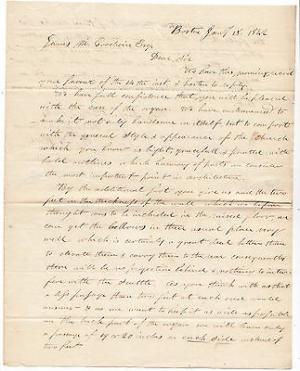 Boston Jany 15. 1842
James M. Esqr
Dear Sir
We have this morning recd
your favour of the 14th inst. & hasten to reply.
We have full confidence that you will be pleased
with the case of the organ. We have endeavoured to
make it not only handsome in itself but to comport
with the general style & appearance of the Church
which you know is light, graceful & pointed with
bold outlines which harmony of parts we consider
the most important point in architecture.
By the additional foot you give us and the two
feet in the thickness of the wall which we before
thought was to be included in the nine, we
can get the bellows in their usual place very
well which is certainly a great deal better than
to elevate them & carry them to the rear consequently
there will be no projection behind & nothing to inter
fere with the As you think with us that
a life passage than two feet at each end would
answer & as we want to keep it as wide as possible
in the back part of the organ we will have only
a passage of 19 or 20 inches on each side instead of
two feet